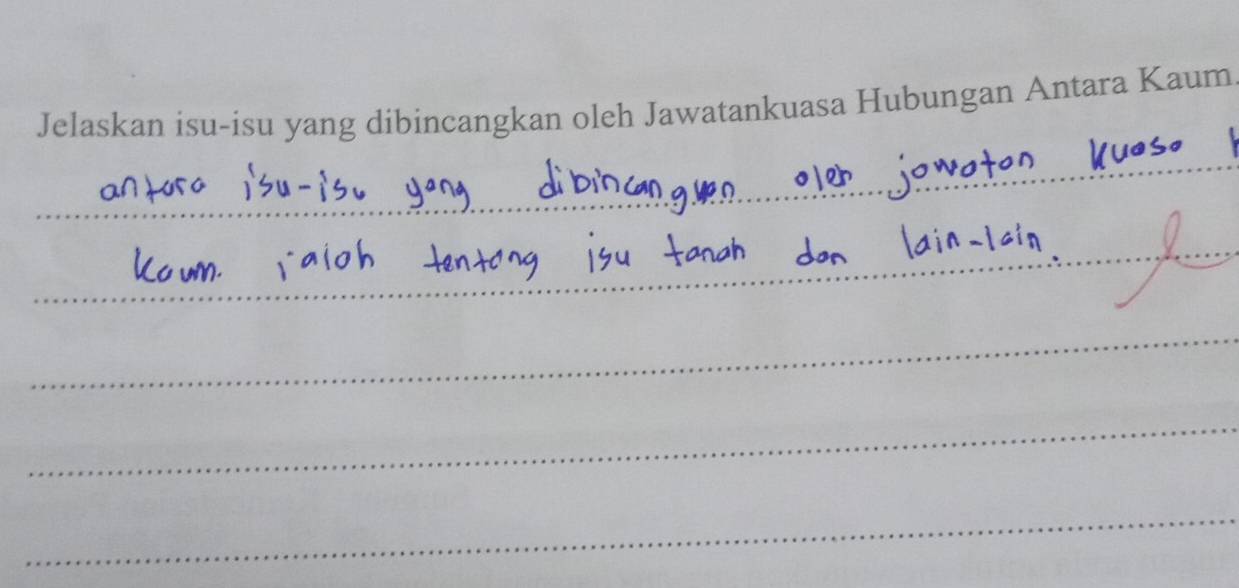 Jelaskan isu-isu yang dibincangkan oleh Jawatankuasa Hubungan Antara Kaum.
antara isu-isu yang dibincangkan oleh jawatan kuasa
kaum. ialah tentang isu tanah dan lain-lain.